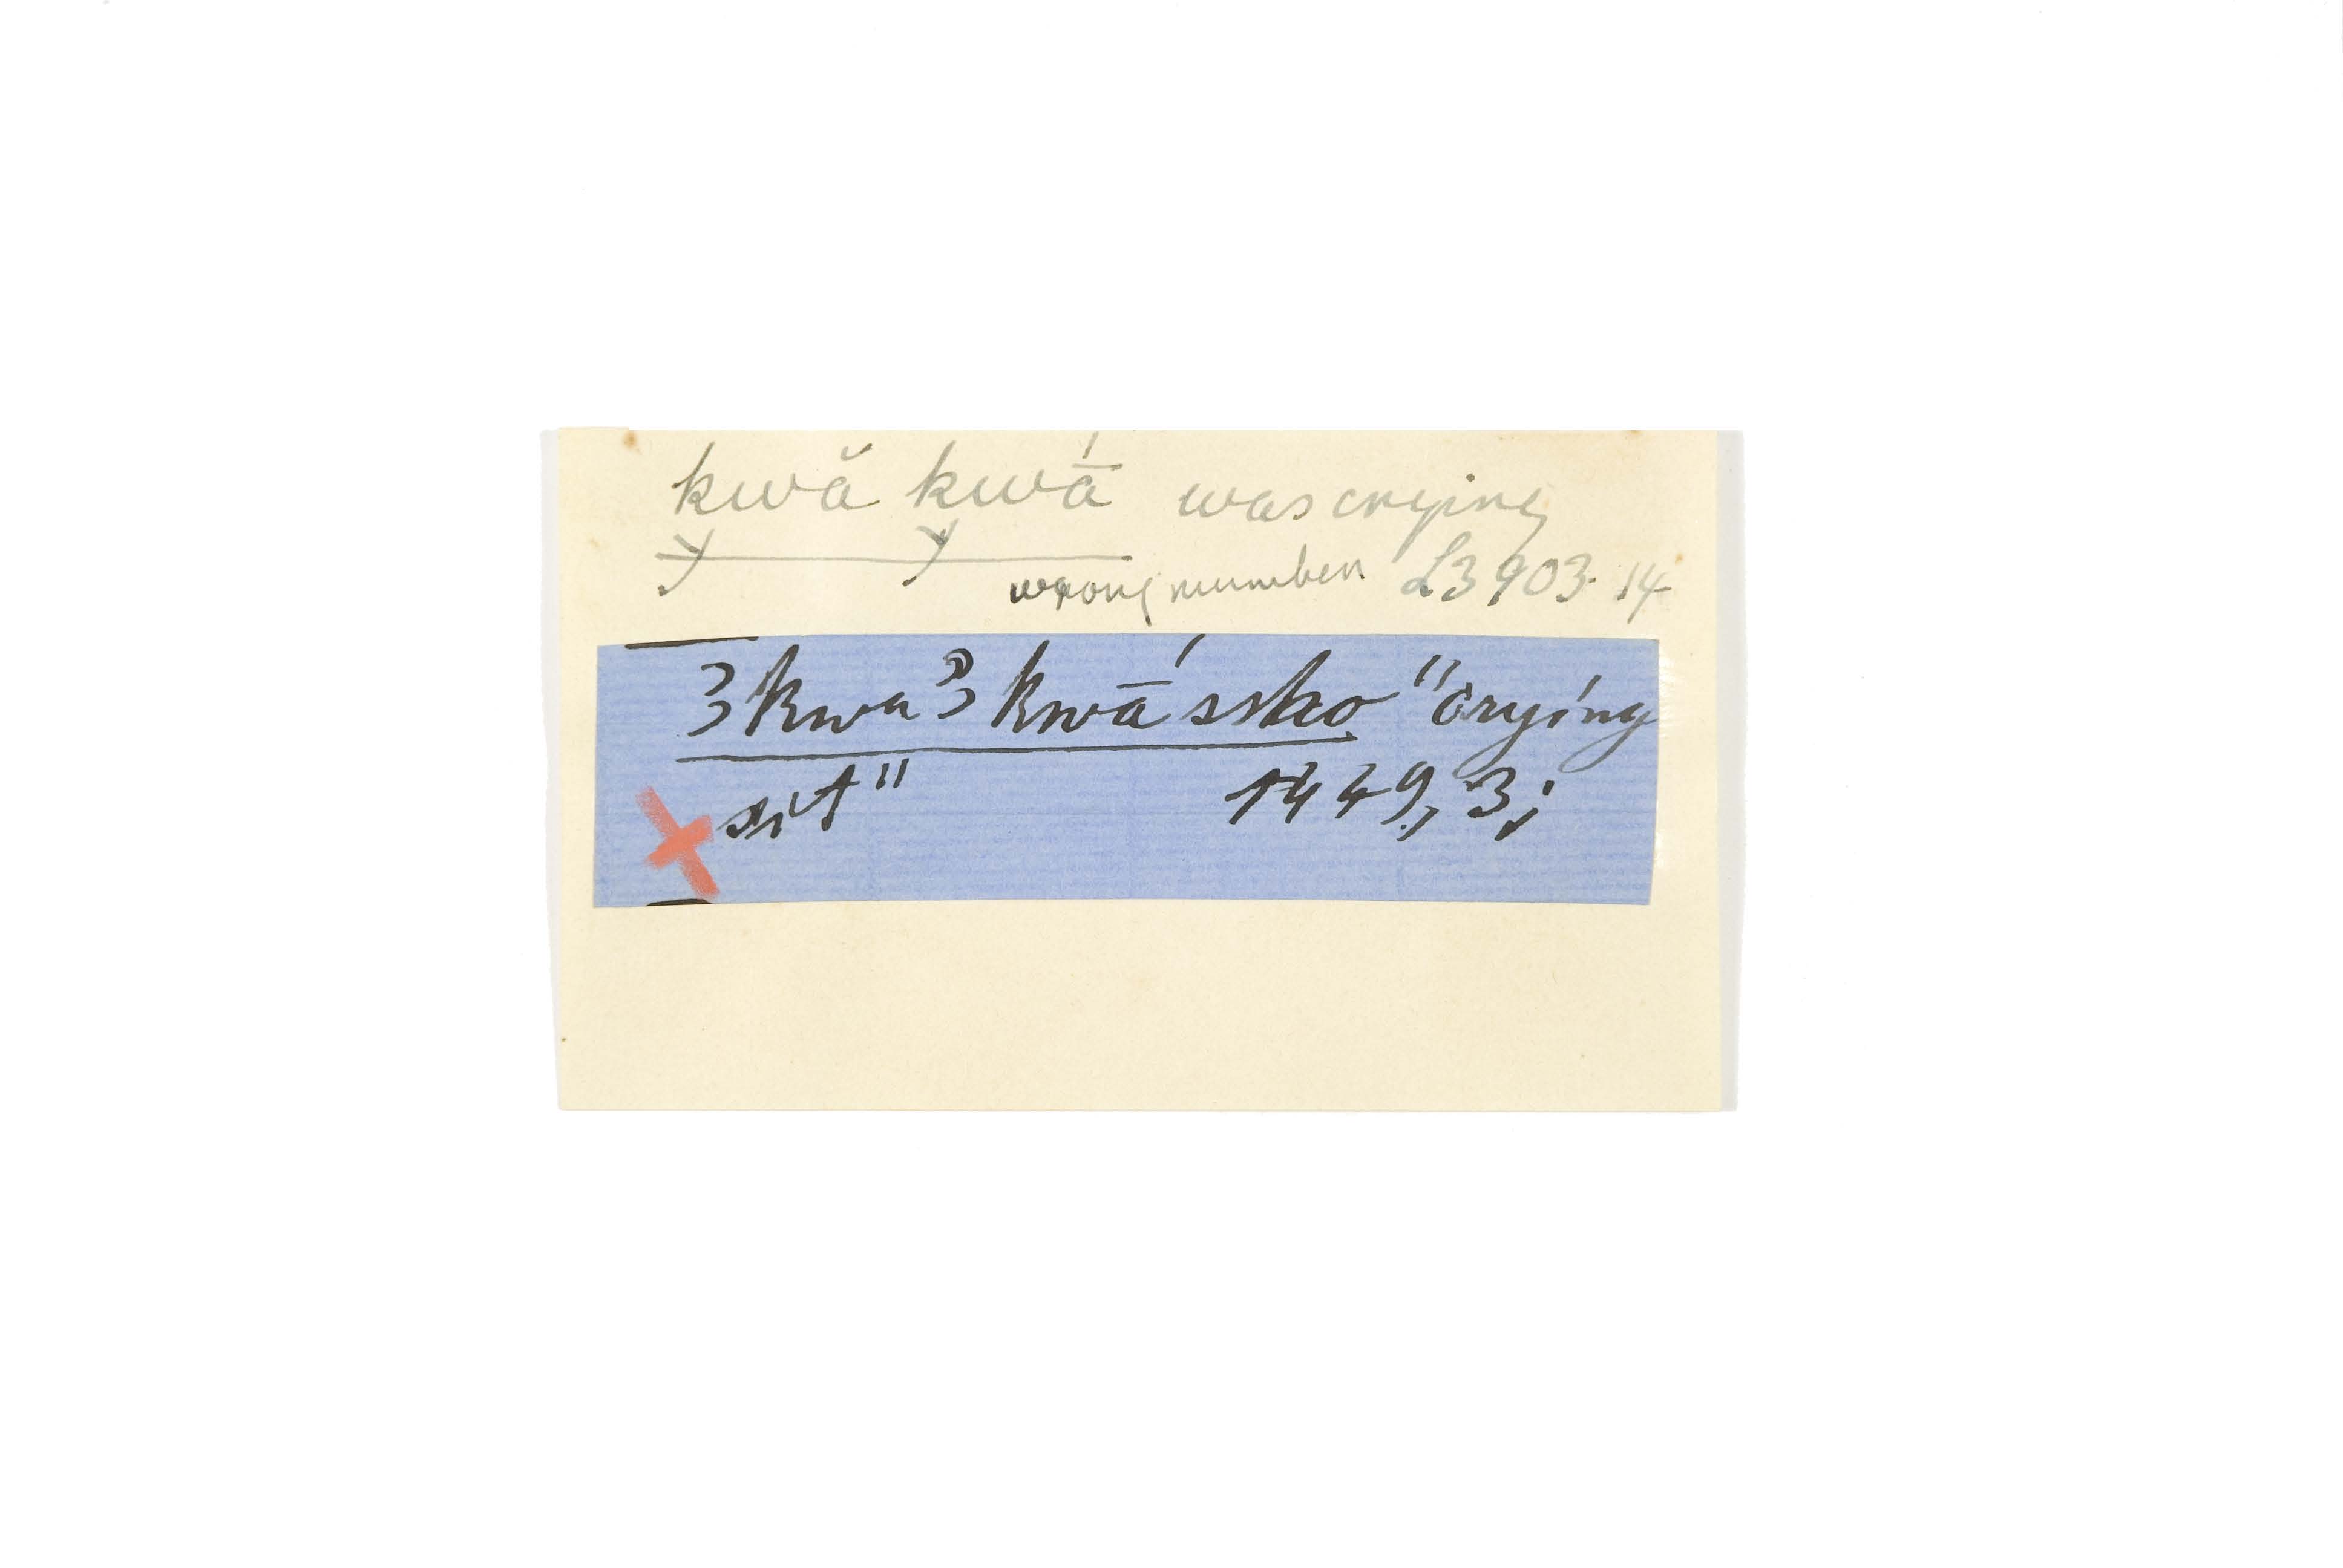 kwă kwā́ was crying
wrong number L3 903. 14
ʒkwa ʒkwā́ ssho "crying
sit" 1449, 3;